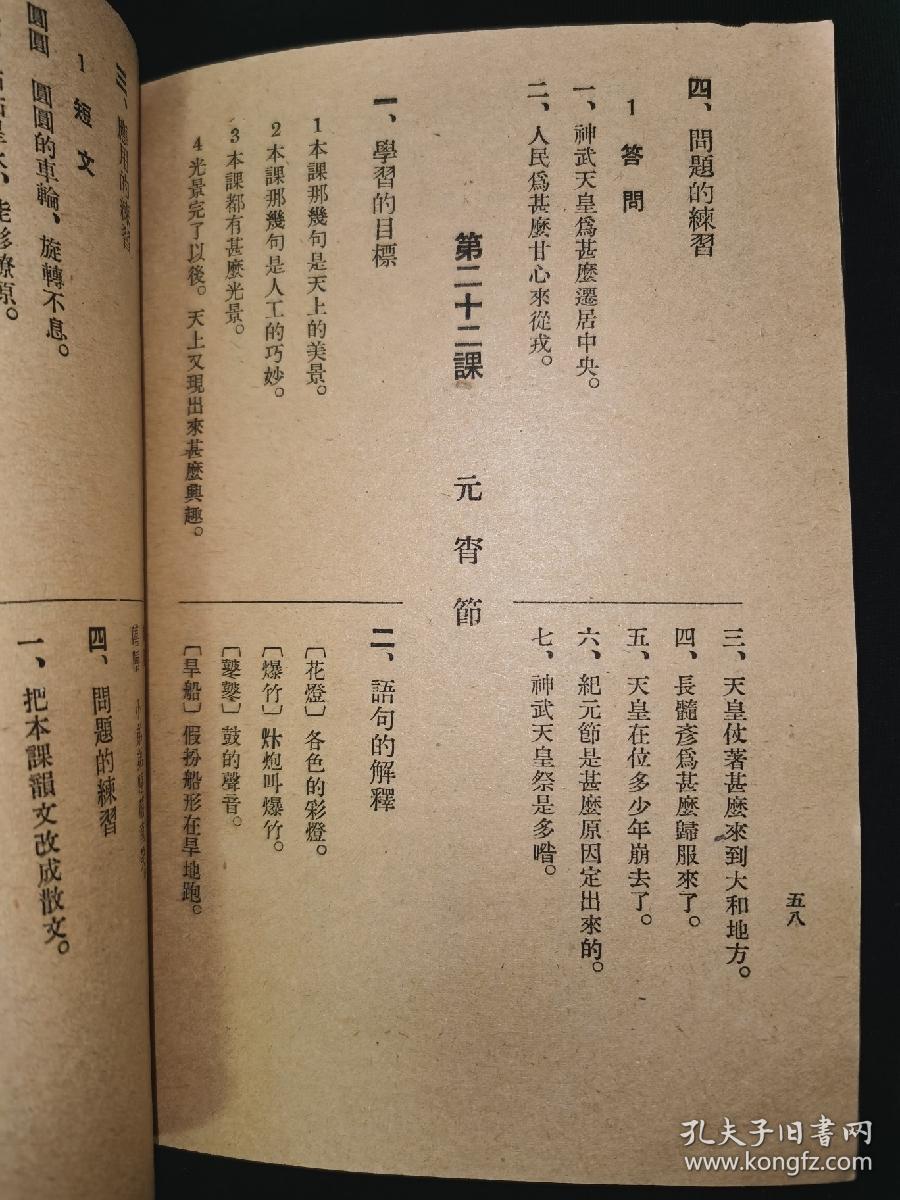 五八
四、問題的練習
1 答問
一、神武天皇爲甚麼遷居中央。
二、人民爲甚麼甘心來從戎。
三、天皇仗著甚麼來到大和地方。
四、長髓彥爲甚麼歸服來了。
五、天皇在位多少年崩去了。
六、紀元節是甚麼原因定出來的。
七、神武天皇祭是多喒。
第二十二課 元宵節
一、學習的目標
1 本課那幾句是天上的美景。
2 本課那幾句是人工的巧妙。
3 本課都有甚麼光景。
4 光景完了以後。天上又現出來甚麼興趣。
二、語句的解釋
〔花燈〕各色的彩燈。
〔爆竹〕炑炮叫爆竹。
〔鼕鼕〕鼓的聲音。
〔旱船〕假扮船形在旱地跑。
三、應用的練習
1 短文
圓圓 圓圓的車輪、旋轉不息。
燎原。
四、問題的練習
一、把本課韻文改成散文。
孔夫子旧书网
www.kongfz.com